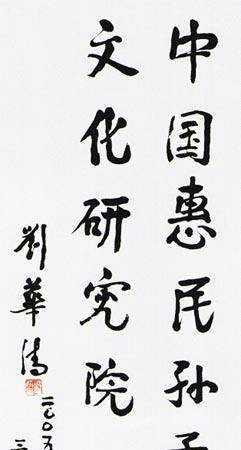 中国惠民孙子
文化研究院
劉華清
二〇〇五
三